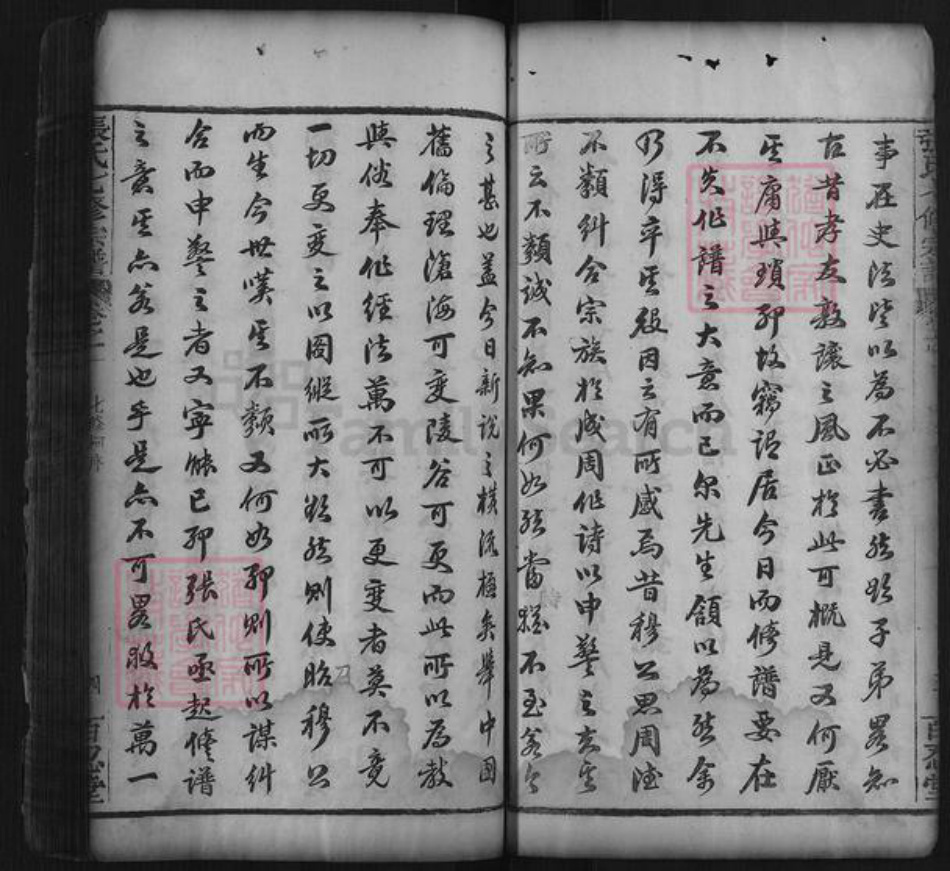 事在史法皆以為不必書然紗子弟畧知
古昔孝友敦讓之風正於此可概見又何厭
其庸與瑣耶故竊謂居今日而修譜要在
不失作譜之大意而已尔先生頷以為然余
乃得卒其役因之有所感焉昔穆公思周德
不類糾合宗族於成周作詩以申警之哀其
所云不類誠不知果何如然當猶不至若今
之甚也蓋今日新說之橫流極矣舉中國
舊倫理滄海可變陵谷可更而此所以為教
與俗奉作經法萬不可以更變者莫不竟
一切更變之以圖縱所大欲然則使召穆公
而生今世嘆其不類又何如耶則所以謀糾
合而申警之者又寧能已耶張氏亟起修譜
之意其亦若是也乎是亦不可畧救於萬一
張氏七修宗譜
百忍堂
FamilySearch